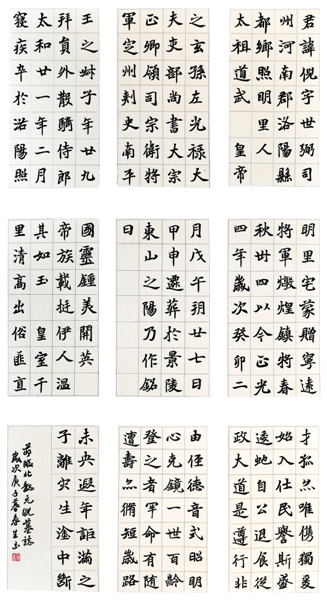 君諱倪字世弼司
州河南郡洛陽縣
都鄉照明里人
太祖道武 皇帝
之玄孫左光祿大
夫吏部尚書大宗
正卿領司宗衛將
軍定州刺史南平
王之子年廿九
拜員外散騎侍郎
太和廿一年二月
寢疾卒於洛陽照
明里宅蒙贈寧遠
將軍燉煌鎮將春
秋卌四以今正光
四年歲次癸卯二
月戊午朔廿七日
甲申遷葬於景陵
東山之陽乃作銘
曰
國靈鍾美開英
帝族載挺伊人溫
其如玉 皇室千
里清高出俗匪直
才孤亦唯儁獨秀
始入仕民譽斯盛
逶虵自公退食從
政大道是遵行非
由徑德音式昭明
心克鏡一世百齡
登之者罕命有
遭壽亦彌短歲路
未央遐年詎滿之
子離災生塗中斷
節臨北魏元倪墓誌
歲次庚子春